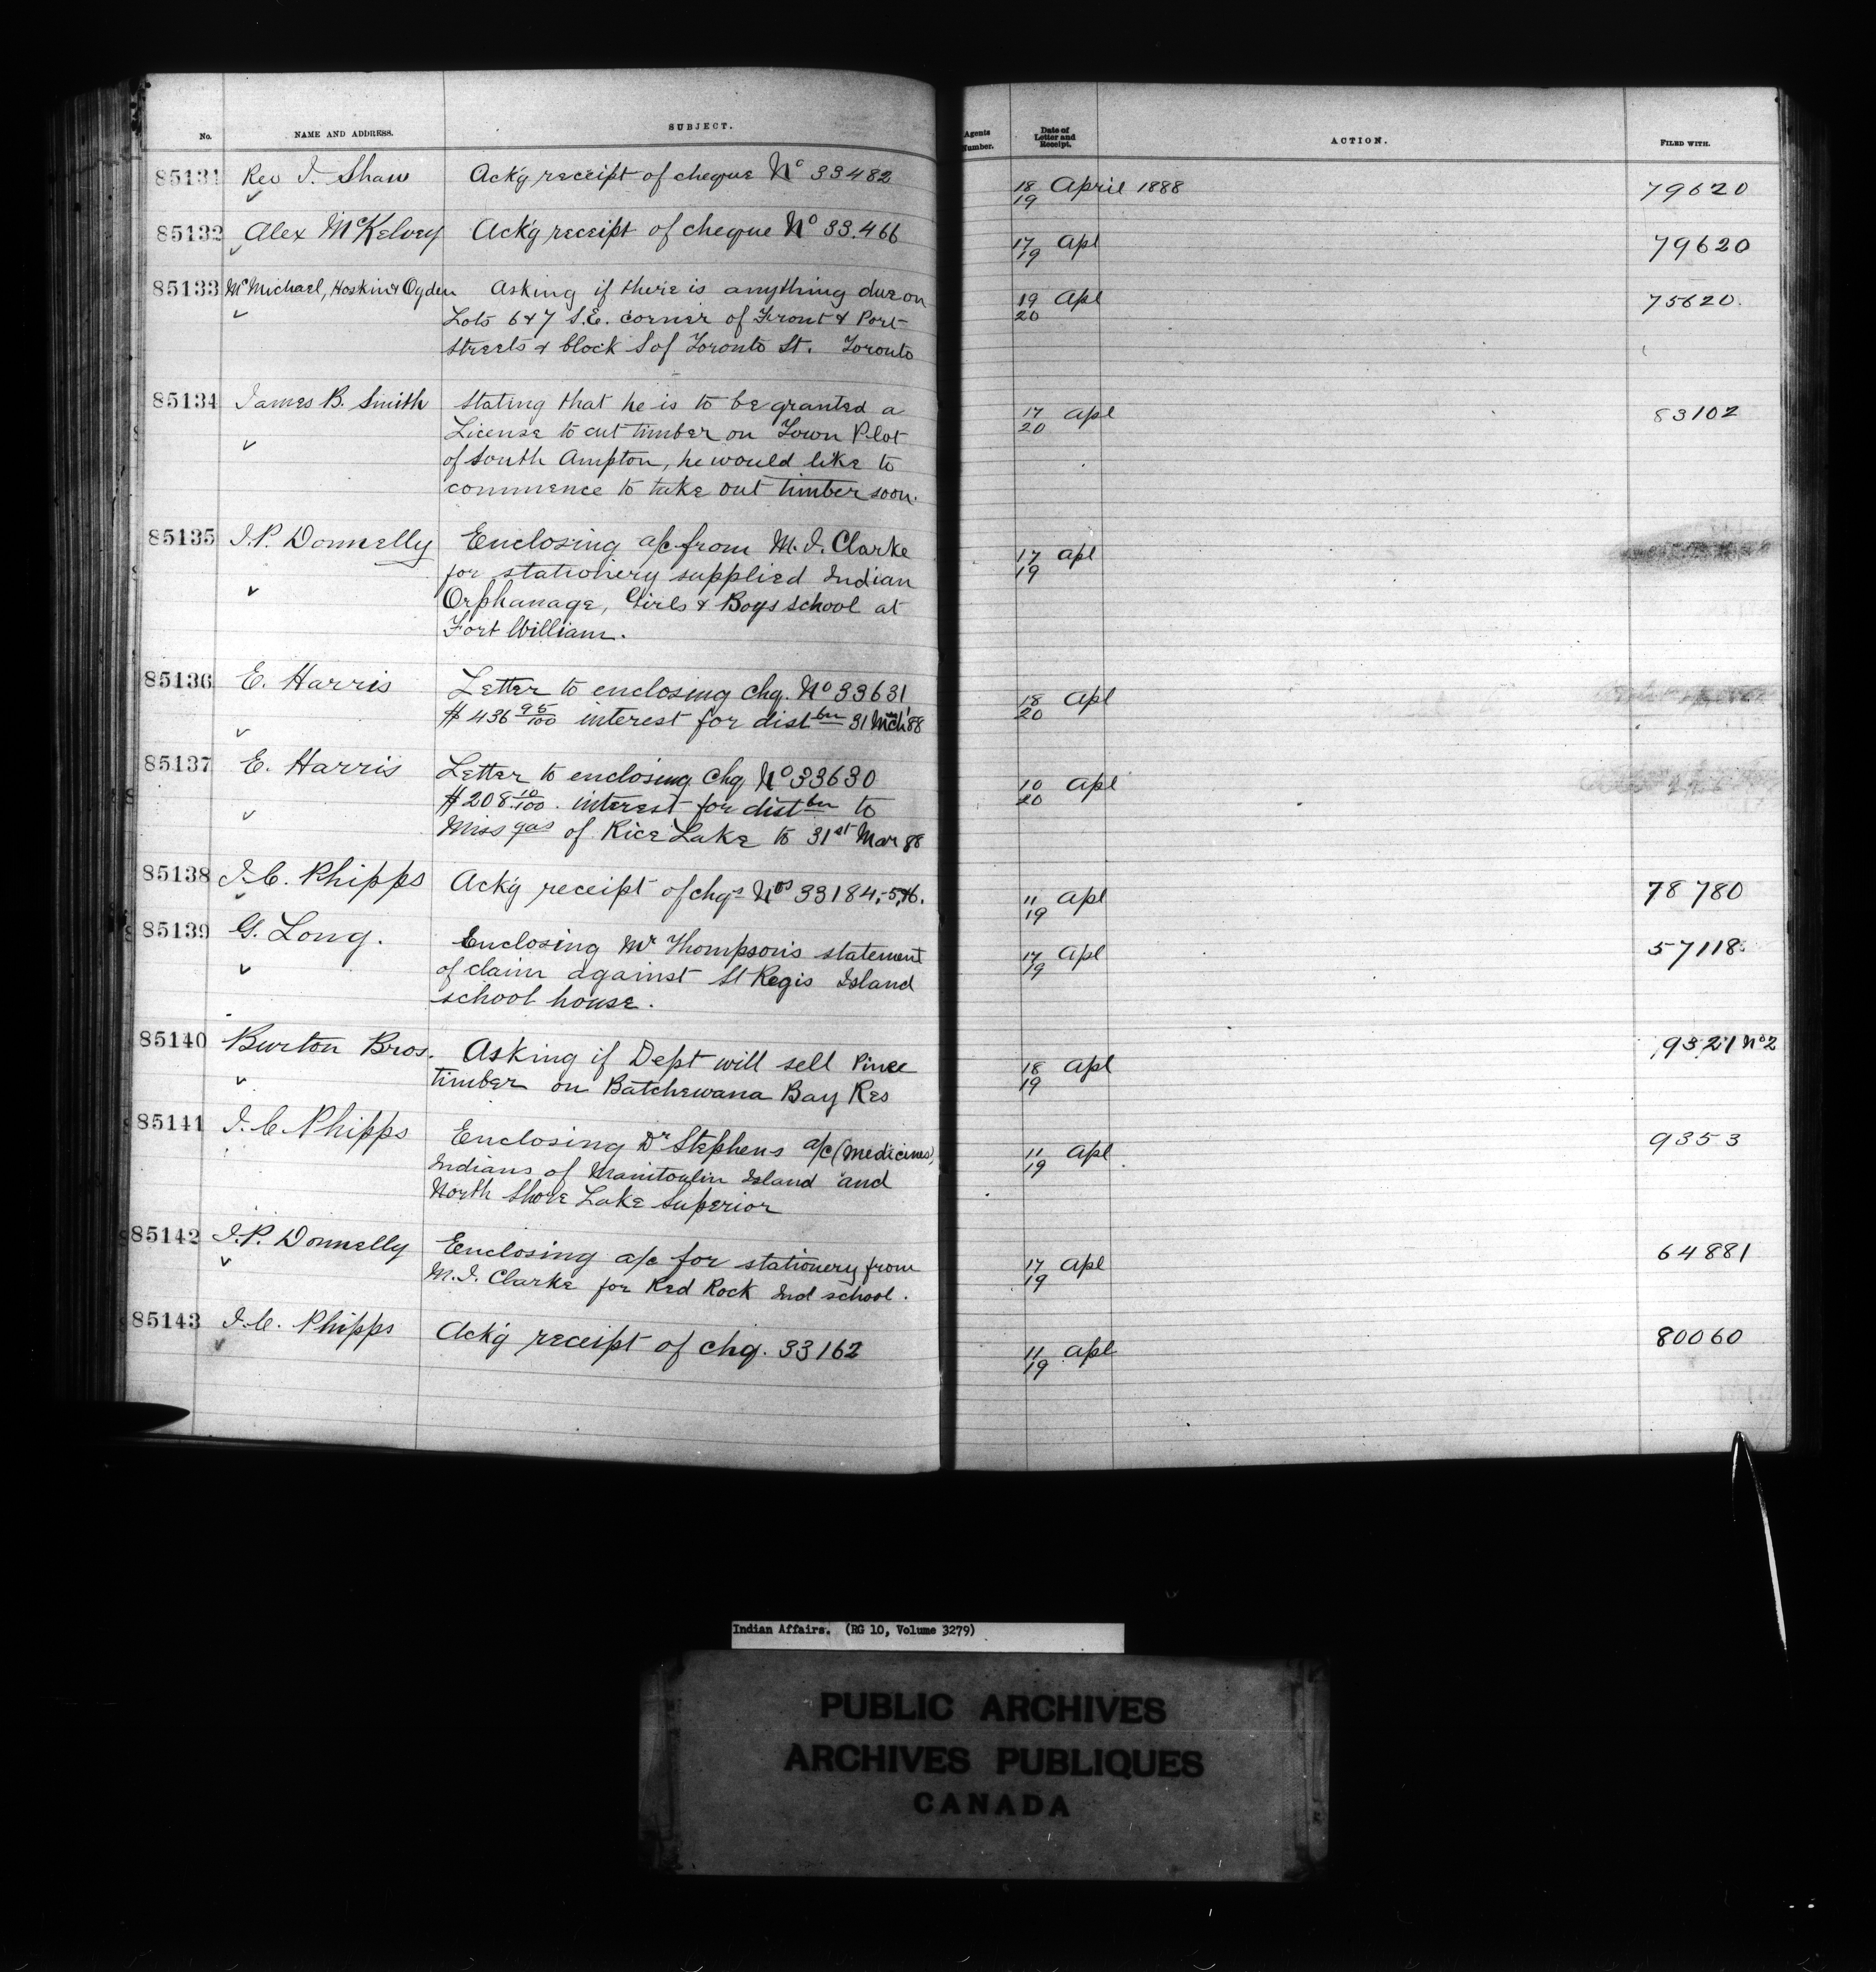 No. NAME AND ADDRESS. SUBJECT. Agents Number. Date of Letter and Receipt. ACTION. FILED WITH.
85131 Rev J. Shaw Ackg receipt of cheque No 33482 18/19 April 1888 79620
85132 Alex McKelvey Ackg receipt of cheque No 33.466 17/19 Apl 79620
85133 McMichael, Hoskin & Ogden Asking if there is anything due on 19/20 Apl 75620.
Lots 6 & 7 S.E. corner of Front & Port
streets & block S of Toronto St. Toronto
85134 James B. Smith Stating that he is to be granted a 17/20 Apl 83102
License to cut timber on Town Plot
of South Ampton, he would like to
commence to take out timber soon.
85135 J.P. Donnelly Enclosing a/c from M.J. Clarke 17/19 Apl
for stationery supplied Indian
Orphanage, Girls & Boys School at
Fort William.
85136 E. Harris Letter to enclosing chq. No 33631 18/20 Apl
$436 95/100 interest for distbn 31 Mch '88
85137 E. Harris Letter to enclosing chq No 33630 10/20 Apl
$208 10/100. interest for distbn to
Missgas of Rice Lake to 31st Mar 88
85138 J.C. Phipps Ackg receipt of chqs Nos 33184,-5,&6. 11/19 Apl 78780
85139 G. Long. Enclosing Mr Thompson's statement 17/19 Apl 57118.
of claim against St Regis Island
school house.
85140 Burton Bros. Asking if Dept will sell Pine 18/19 Apl 9321 No 2
timber on Batchewana Bay Res
85141 J.C. Phipps Enclosing Dr Stephens a/c (medicines) 11/19 Apl 9353
Indians of Manitoulin Island and
North Shore Lake Superior
85142 J.P. Donnelly Enclosing a/c for stationery from 17/19 Apl 64881
M.J. Clarke for Red Rock Ind school.
85143 J.C. Phipps Ackg receipt of chq. 33162 11/19 Apl 80060
Indian Affairs. (RG 10, Volume 3279)
PUBLIC ARCHIVES
ARCHIVES PUBLIQUES
CANADA